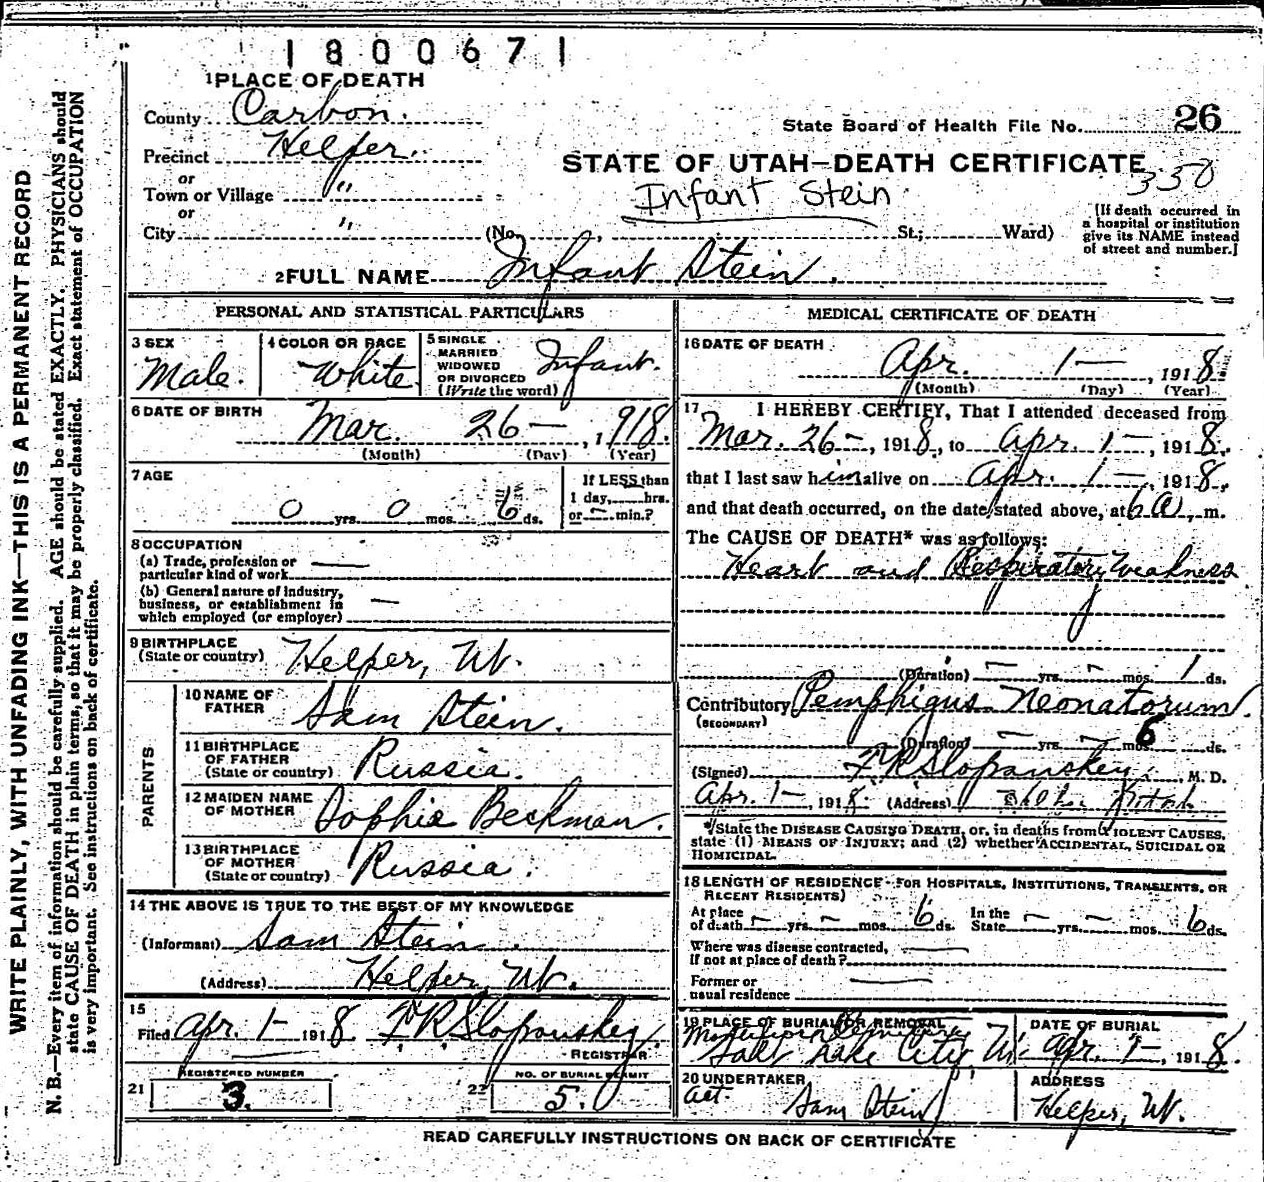 1800671
1 PLACE OF DEATH
County Carbon.
Precinct Helper.
or
Town or Village "
or
City "
State Board of Health File No. 26
STATE OF UTAH—DEATH CERTIFICATE
350
Infant Stein
(No. , St.; Ward)
[If death occurred in
a hospital or institution
give its NAME instead
of street and number.]
2 FULL NAME Infant Stein.
PERSONAL AND STATISTICAL PARTICULARS
3 SEX
Male.
4 COLOR OR RACE
White
5 SINGLE
MARRIED
WIDOWED
OR DIVORCED
(Write the word)
Infant.
6 DATE OF BIRTH
Mar. 26 — , 1918.
(Month) (Day) (Year)
7 AGE
0 yrs. 0 mos. 6 ds.
If LESS than
1 day, hrs.
or — min.?
8 OCCUPATION
(a) Trade, profession or
particular kind of work —
(b) General nature of industry,
business, or establishment in
which employed (or employer) —
9 BIRTHPLACE
(State or country) Helper, Ut.
PARENTS
10 NAME OF
FATHER Sam Stein.
11 BIRTHPLACE
OF FATHER
(State or country) Russia.
12 MAIDEN NAME
OF MOTHER Sophie Beckman.
13 BIRTHPLACE
OF MOTHER
(State or country) Russia.
14 THE ABOVE IS TRUE TO THE BEST OF MY KNOWLEDGE
(Informant) Sam Stein.
(Address) Helper, Ut.
15
Filed Apr. 1— 1918. F R Slopanskey.
REGISTRAR
REGISTERED NUMBER
21 3.
NO. OF BURIAL PERMIT
22 5.
MEDICAL CERTIFICATE OF DEATH
16 DATE OF DEATH
Apr. 1— , 1918.
(Month) (Day) (Year)
17 I HEREBY CERTIFY, That I attended deceased from
Mar. 26 — , 1918, to Apr. 1 — , 1918.
that I last saw him alive on Apr. 1 — , 1918,
and that death occurred, on the date stated above, at 6 a. m.
The CAUSE OF DEATH* was as follows:
Heart and Respiratory Weakness
(Duration) — yrs. — mos. 1 ds.
Contributory Pemphigus Neonatorum.
(SECONDARY)
(Duration) — yrs. — mos. 6 ds.
(Signed) F R Slopanskey, M. D.
Apr. 1—, 1918. (Address)
*State the DISEASE CAUSING DEATH, or, in deaths from VIOLENT CAUSES,
state (1) MEANS OF INJURY; and (2) whether ACCIDENTAL, SUICIDAL OR
HOMICIDAL.
18 LENGTH OF RESIDENCE (FOR HOSPITALS, INSTITUTIONS, TRANSIENTS, OR
RECENT RESIDENTS)
At place
of death — yrs. — mos. 6 ds.
In the
State — yrs. — mos. 6 ds.
Where was disease contracted,
if not at place of death? —
Former or
usual residence —
19 PLACE OF BURIAL OR REMOVAL
Salt Lake City, Ut.
DATE OF BURIAL
Apr. 2—, 1918.
20 UNDERTAKER
Act. Sam Stein
ADDRESS
Helper, Ut.
READ CAREFULLY INSTRUCTIONS ON BACK OF CERTIFICATE
WRITE PLAINLY, WITH UNFADING INK—THIS IS A PERMANENT RECORD
N. B.—Every item of information should be carefully supplied. AGE should be stated EXACTLY. PHYSICIANS should
state CAUSE OF DEATH in plain terms, so that it may be properly classified. Exact statement of OCCUPATION
is very important. See instructions on back of certificate.